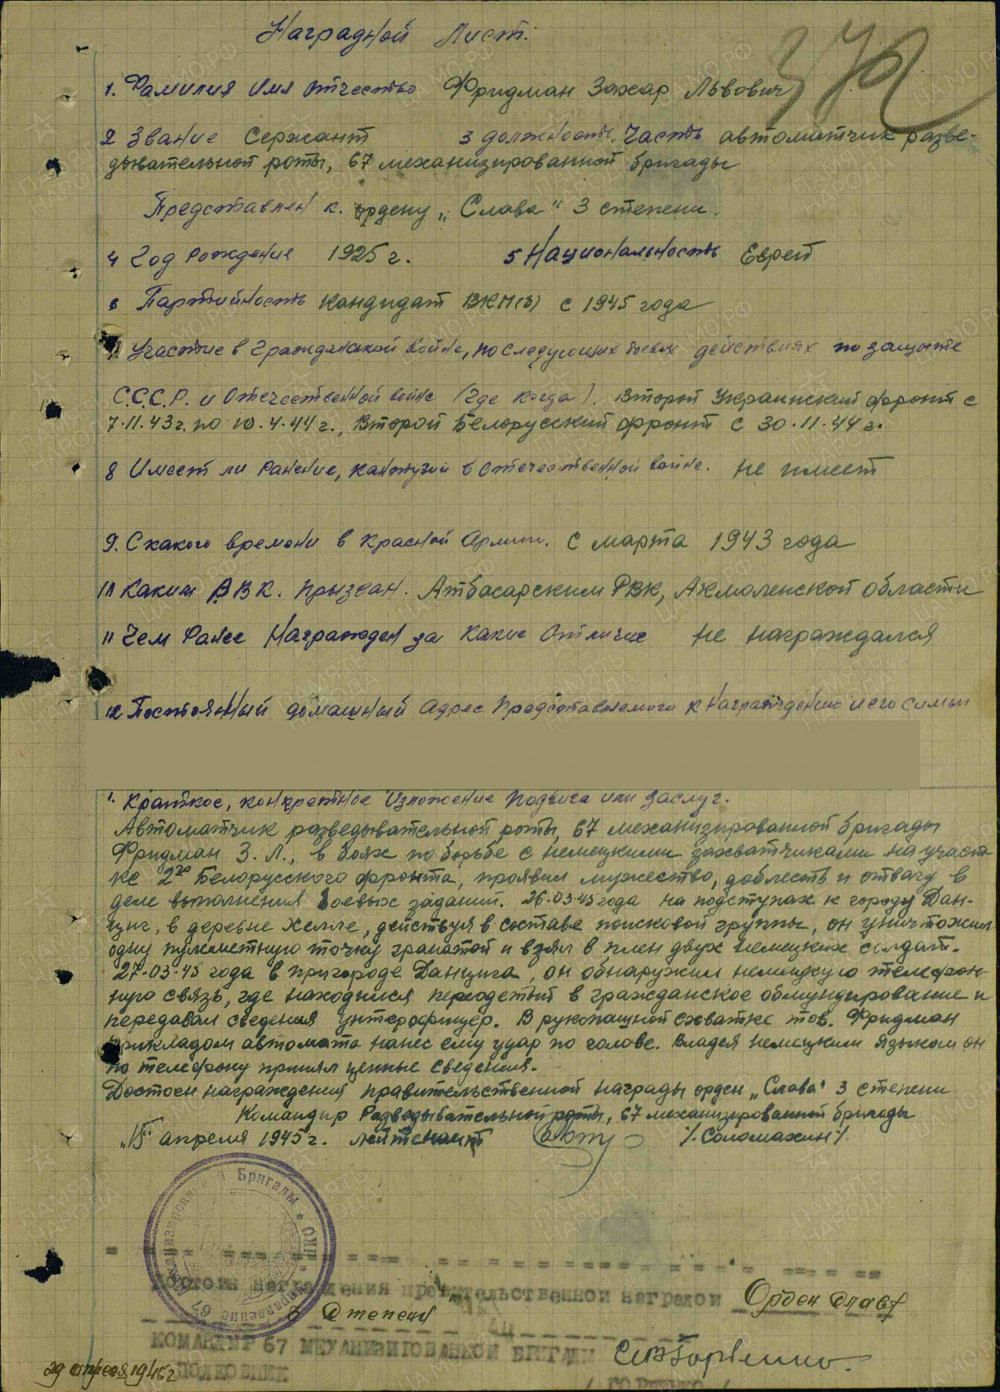 Наградной Лист.
372
1. Фамилия Имя Отчество Фридман Захар Львович
2 Звание Сержант 3 должность, часть автоматчик разве-
дывательной роты, 67 механизированной бригады
Представлен к. ордену „Слава" 3 степени.
4 Год рождения 1925 г. 5 Национальность Еврей
6 Партийность кандидат ВКП(б) с 1945 года
Участие в Гражданской войне, последующих боевых действиях по защите
С.С.С.Р. и Отечественной войне (где когда). Второй Украинский фронт с
7.11.43 г. по 10.4.44 г., Второй Белорусский фронт с 30.11.44 г.
8 Имеет ли ранение, контузий в Отечественной войне. не имеет
9. С какого времени в Красной Армии. С марта 1943 года
10 Каким РВК. Призван. Атбасарским РВК, Акмоленской области
11 Чем Ранее Награжден за какие отличие не награждался
12 Постоянный домашний адрес представляемого к награждению и его семьи
1. Краткое, конкретное изложение подвига или заслуг.
Автоматчик разведывательной роты, 67 механизированной бригады
Фридман З. Л., в боях по борьбе с немецкими захватчиками на участ-
ке 2го Белорусского фронта, проявил мужество, доблесть и отвагу в
деле выполнения боевых задании. 26.03.45 года на подступах к городу Дан-
циг, в деревне Хелле, действуя в составе поисковой группы, он уничтожил
одну пулеметную точку гранатой и взял в плен двух немецких солдат.
27.03.45 года в пригороде Данцига, он обнаружил немецкую телефон-
ную связь, где находился переодетый в гражданское обмундирование и
передавал сведения унтерофицер. В рукопашной схватке тов. Фридман
прикладом автомата нанес ему удар по голове. Владея немецким языком он
по телефону принял ценные сведения.
Достоен награждения правительственной награды орден „Слава" 3 степени
Командир Разведывательной роты, 67 механизированной бригады
„15" апреля 1945 г. лейтенант /Соломахин/
Управление 67 Механизированной Бригады
Достоин награждения правительственной наградой Орден Славы
3 степени
КОМАНДИР 67 МЕХАНИЗИРОВАННОЙ БРИГАДЫ
ПОЛКОВНИК / ГОРБЕНКО /
29 апреля 1945 г